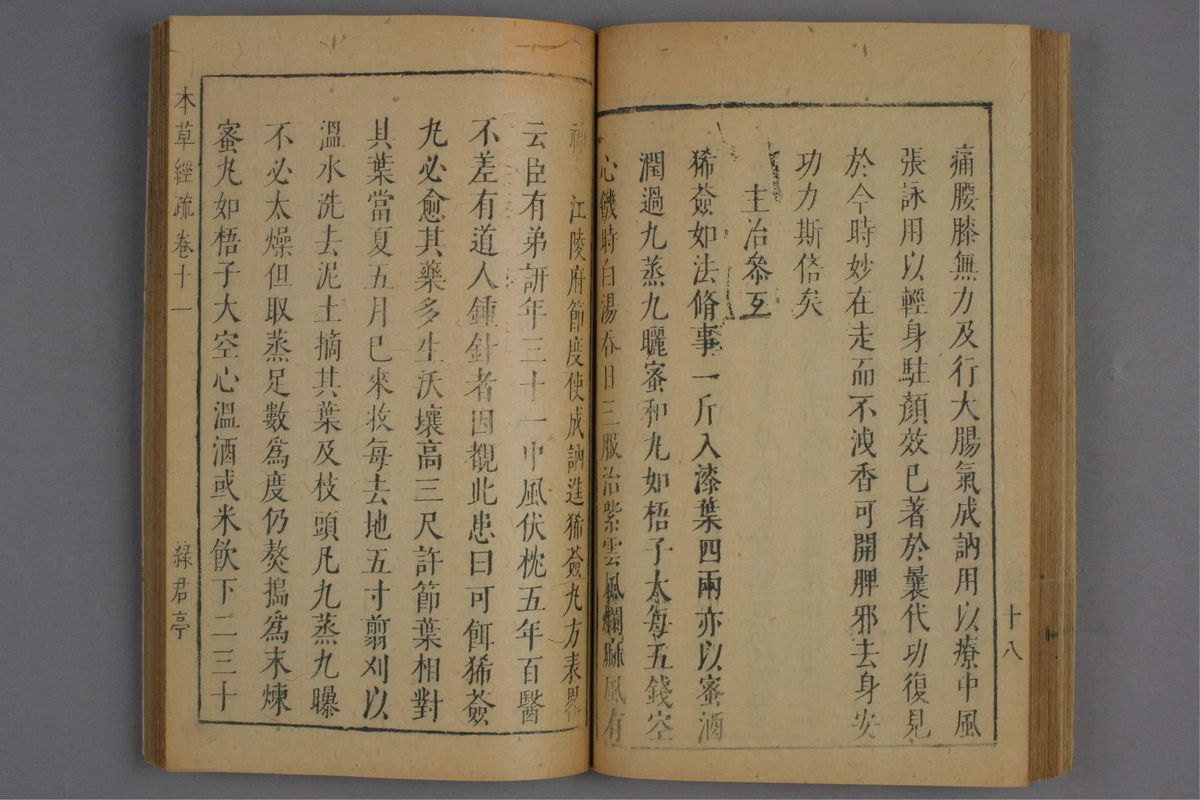 十八
痛腰膝無力及行大腸氣成訥用以療中風
張詠用以輕身駐顏效已著於曩代功復見
於今時妙在走而不洩香可開脾邪去身安
功力斯倍矣
主治參互
豨薟如法脩事一斤入漆葉四兩亦以蜜酒
潤過九蒸九曬蜜和丸如梧子大每五錢空
心饑時白湯吞日三服治紫雲風爛麻風有
神 江陵府節度使成訥進豨薟丸方表畧
云臣有弟訮年三十一中風伏枕五年百醫
不差有道人鍾針者因覩此患曰可餌豨薟
丸必愈其藥多生沃壤高三尺許節葉相對
其葉當夏五月巳來收每去地五寸剪刈以
溫水洗去泥土摘其葉及枝頭凡九蒸九曝
不必太燥但取蒸足數爲度仍熬搗爲末煉
蜜丸如梧子大空心溫酒或米飲下二三十
本草經疏卷十一
綠君亭